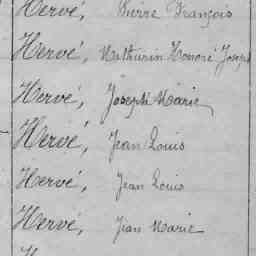 Hervé, Pierre François
Hervé, Mathurin Honoré Joseph
Hervé, Joseph Marie
Hervé, Jean Louis
Hervé, Jean Louis
Hervé, Jean Marie